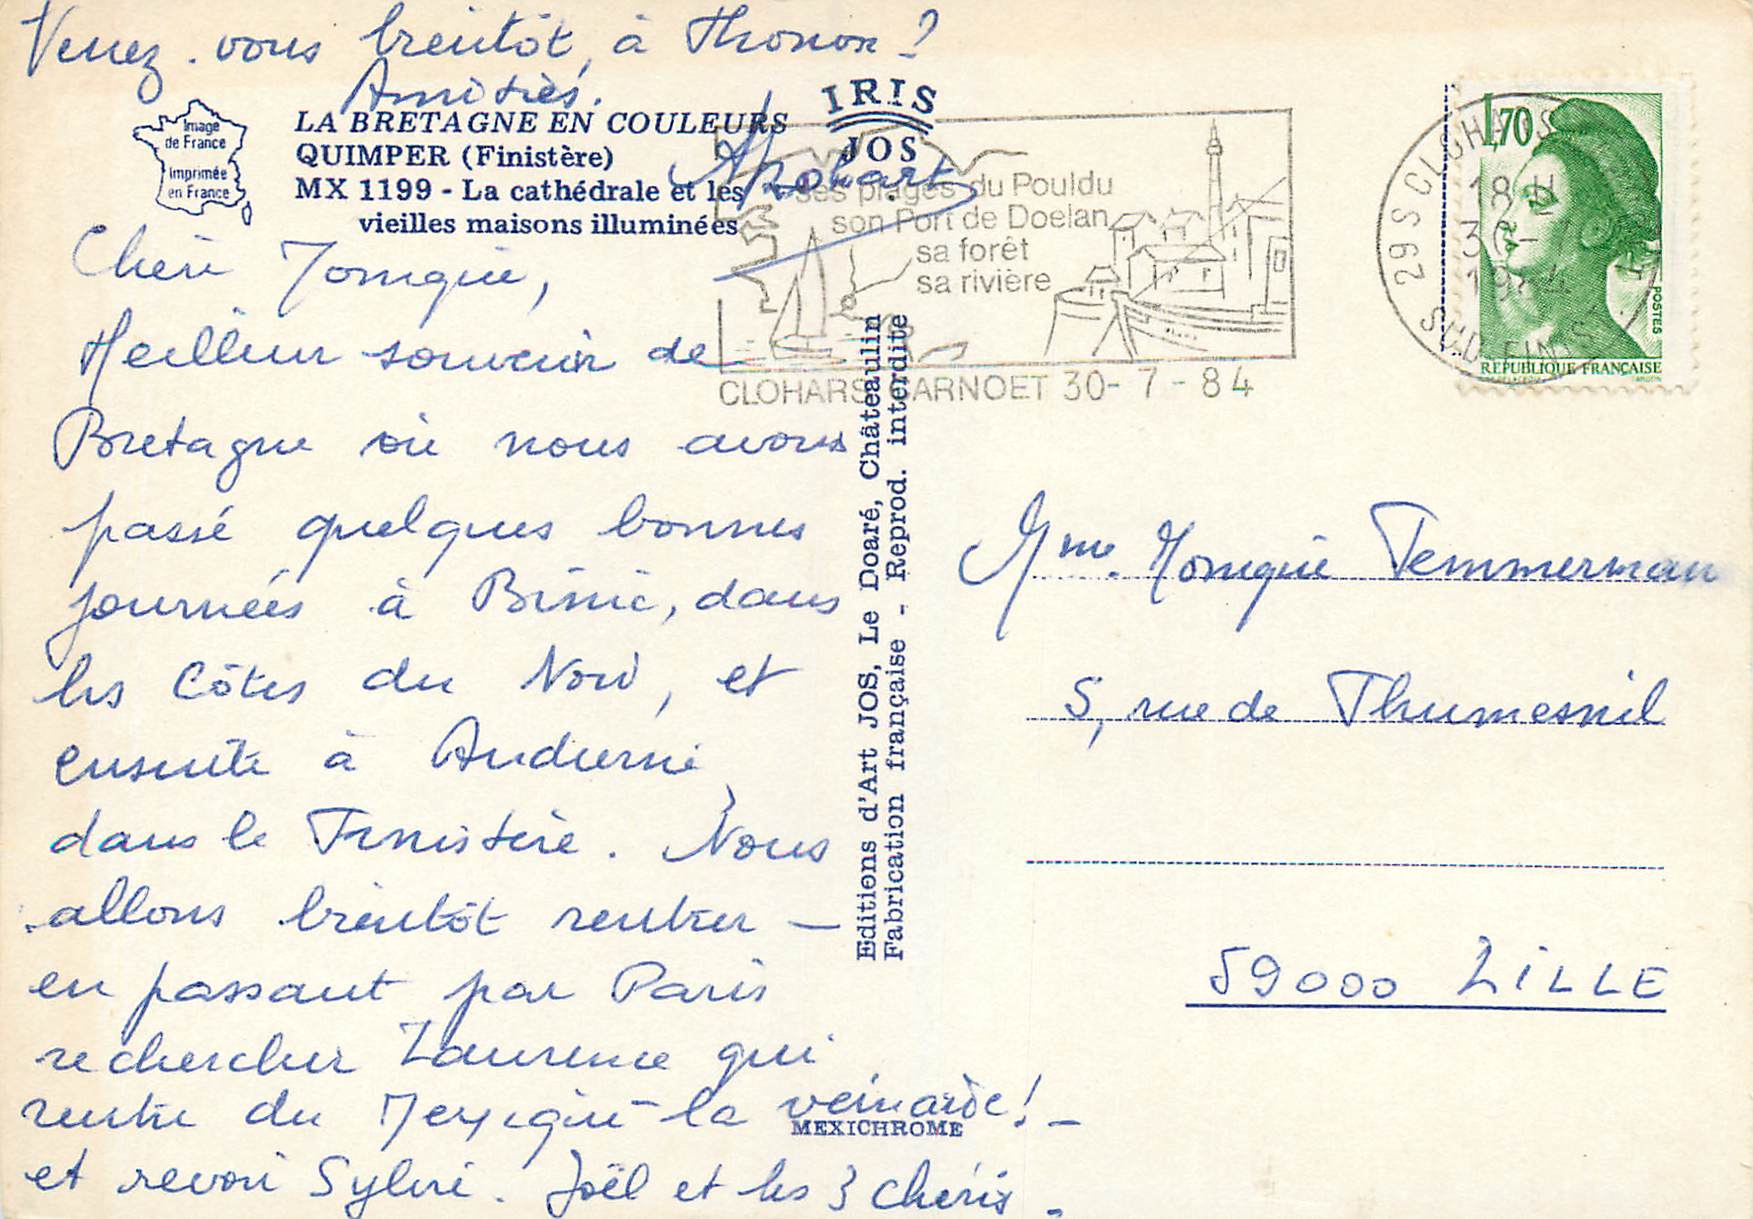 Venez-vous bientôt, à Thonon ?
Amitiés.
Image
de France
Imprimée
en France
LA BRETAGNE EN COULEURS
QUIMPER (Finistère)
MX 1199 - La cathédrale et les
vieilles maisons illuminées
IRIS
JOS
Chère Monique,
Meilleur souvenir de
Bretagne où nous avons
passé quelques bonnes
journées à Binic, dans
les Côtes du Nord, et
ensuite à Audierne,
dans le Finistère. Nous
allons bientôt rentrer —
en passant par Paris
rechercher Laurence qui
rentre du Mexique - la veinarde ! -
et revoir Sylvie. Joël et les 3 chéris.
MEXICHROME
Editions d'Art JOS, Le Doaré, Châteaulin
Fabrication française - Reprod. interdite
ses plages du Pouldu
son Port de Doelan
sa forêt
sa rivière
CLOHARS CARNOET 30-7-84
29 S CLOHARS
18 H
30-7
1984
SUD-FINIS
1,70
POSTES
REPUBLIQUE FRANÇAISE
Mme. Monique Temmerman
5, rue de Thumesnil
59000 LILLE